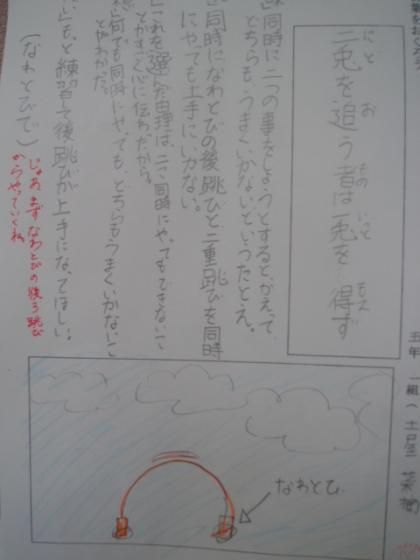 五年 一組 土屋
にと お もの いっと え
二兎を追う者は一兎を得ず
同時に二つの事をしようとすると、かえって
どちらも、うまくいかないといったたとえ。
同時になわとびの後跳びと二重跳びを同時
にやっても上手にいかない。
これを選んだ由理は、二つ同時にやってもできないこ
とがすごく心に伝わたから。
何でも同時にやっても、どちらもうまくいかないこ
とやわかた。
もっと練習して後跳びが上手になってほしい。
(なわとびで)
じゃあまずなわとびの後ろ跳び
からやっていくね
なわとび